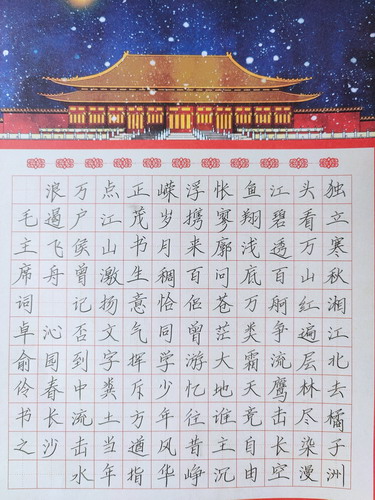 独立寒秋湘江北去橘子洲
头看万山红遍层林尽染漫
江碧透百舸争流鹰击长空
鱼翔浅底万类霜天竞自由
怅寥廓问苍茫大地谁主沉
浮携来百侣曾游忆往昔峥
嵘岁月稠恰同学少年风华
正茂书生意气挥斥方遒指
点江山激扬文字粪土当年
万户侯曾记否到中流击水
浪遏飞舟 沁园春长沙
毛主席词 卓俞伶书之